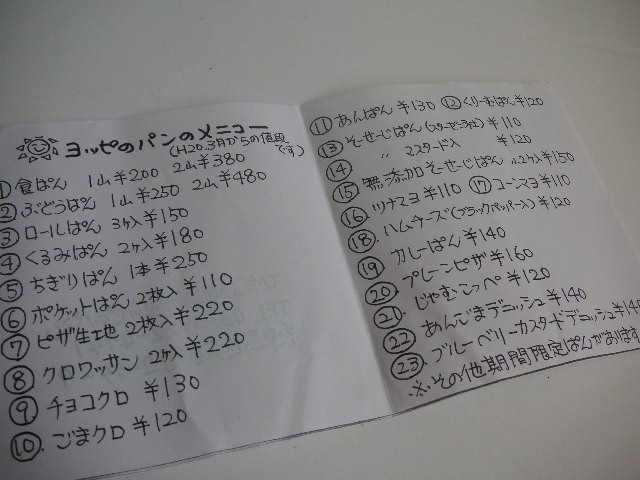 ヨッピのパンのメニュー
(H20.3月からの値段です)
① 食ぱん 1山¥200 2山¥380
② ぶどうぱん 1山¥250 2山¥480
③ ロールぱん 3ヶ入¥150
④ くるみぱん 2ヶ入¥180
⑤ ちぎりぱん 1本¥250
⑥ ポケットぱん 2枚入¥110
⑦ ピザ生地 2枚入¥220
⑧ クロワッサン 2ヶ入¥220
⑨ チョコクロ ¥130
⑩ ごまクロ ¥120
⑪ あんぱん ¥130 ⑫くりーむぱん¥120
⑬ そーせーじぱん ¥110
⑭ 〃 マスタード入 ¥120
⑮ 無添加そーせーじぱん 2ヶ入¥150
⑯ ツナマヨ ¥110 ⑰コーンマヨ¥110
⑱ ハムチーズ(ブラックペッパー入) ¥120
⑲ カレーぱん ¥140
⑳ プレーンピザ ¥160
㉑ じゃむこっぺ ¥120
㉒ あんごまデニッシュ¥140
㉓ ブルーベリーカスタードデニッシュ¥140
※その他期間限定ぱんがあります